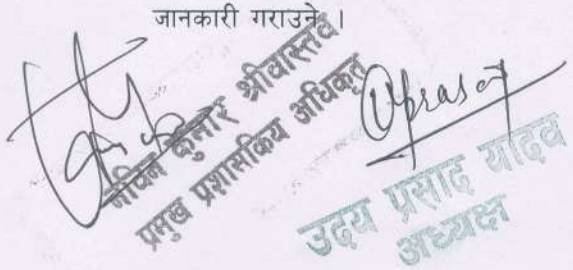 जानकारी गराउने ।
नविन कुमार श्रीवास्तव
प्रमुख प्रशासकिय अधिकृत
Uprasad
उदय प्रसाद यादव
अध्यक्ष